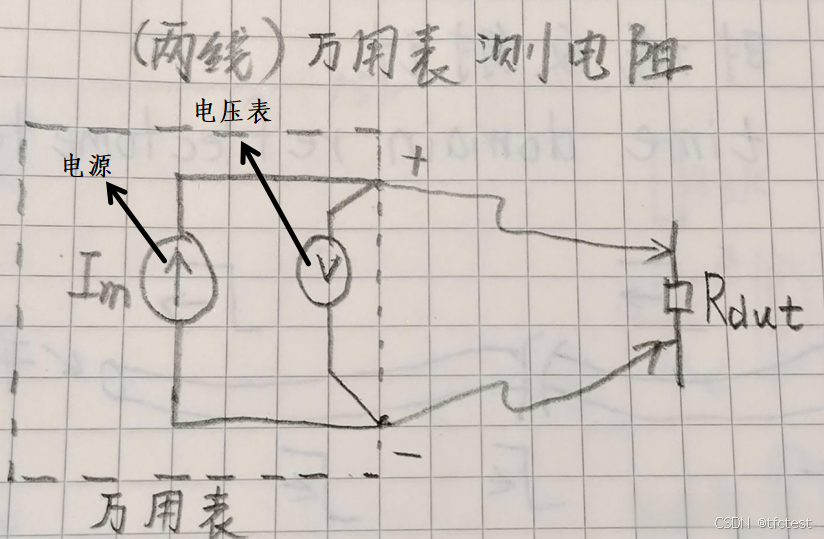 (两线)万用表测电阻
电压表
电源
+
Im
V
Rdut
-
万用表
CSDN @tfctest